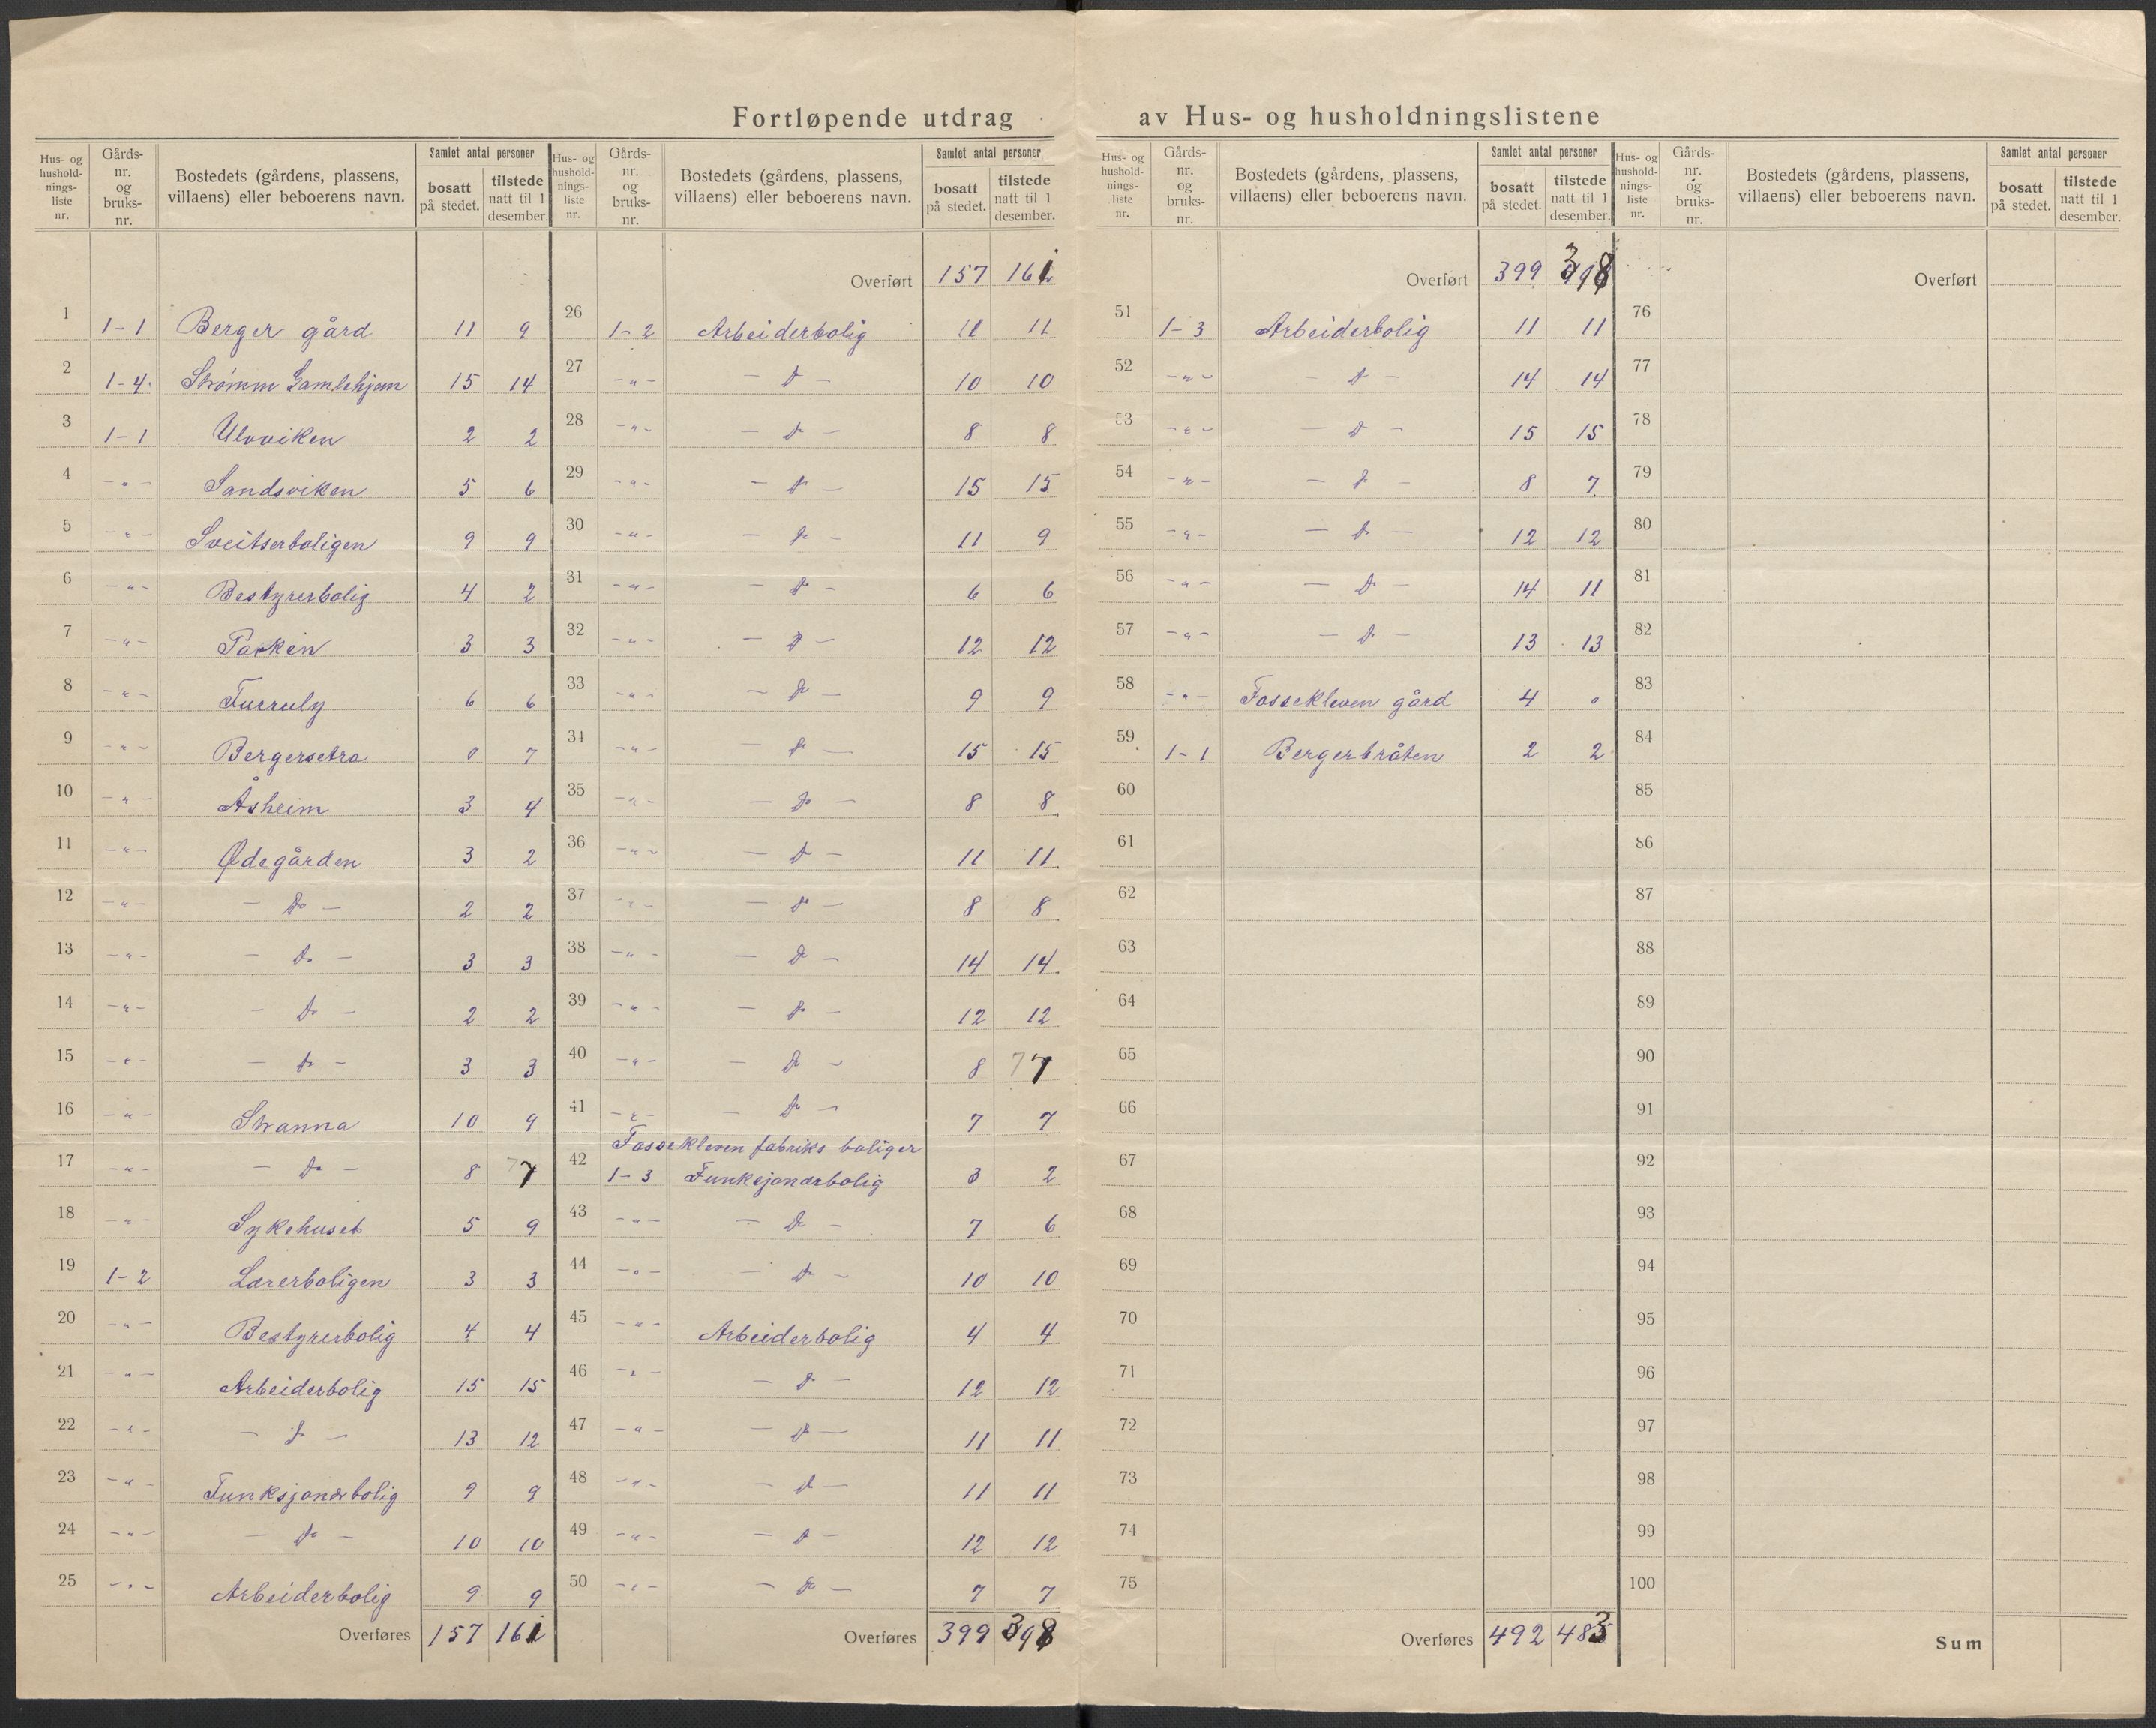 Fortløpende utdrag av Hus- og husholdningslistene
Hus- og husholdnings-liste nr. Gårds-nr. og bruks-nr. Bostedets (gårdens, plassens, villaens) eller beboerens navn. Samlet antal personer bosatt på stedet. tilstede natt til 1 desember.
1 1-1 Berger gård 11 9
2 1-4 Strømm Gamlehjem 15 14
3 1-1 Ulvviken 2 2
4 -"- Sandsviken 5 6
5 -"- Sveitserboligen 9 9
6 -"- Bestyrerbolig 4 2
7 -"- Parken 3 3
8 -"- Furruly 6 6
9 -"- Bergersetra 0 7
10 -"- Åsheim 3 4
11 -"- Ødegården 3 2
12 -"- - Do - 2 2
13 -"- - Do - 3 3
14 -"- - Do - 2 2
15 -"- - Do - 3 3
16 -"- Stranna 10 9
17 -"- - Do - 8 7 7
18 -"- Sykehuset 5 9
19 1-2 Lærerboligen 3 3
20 -"- Bestyrerbolig 4 4
21 -"- Arbeiderbolig 15 15
22 -"- - Do - 13 12
23 -"- Funksjonærbolig 9 9
24 -"- - Do - 10 10
25 -"- Arbeiderbolig 9 9
Overføres 157 161
Hus- og husholdnings-liste nr. Gårds-nr. og bruks-nr. Bostedets (gårdens, plassens, villaens) eller beboerens navn. Samlet antal personer bosatt på stedet. tilstede natt til 1 desember.
Overført 157 161
26 1-2 Arbeiderbolig 11 11
27 -"- - Do - 10 10
28 -"- - Do - 8 8
29 -"- - Do - 15 15
30 -"- - Do - 11 9
31 -"- - Do - 6 6
32 -"- - Do - 12 12
33 -"- - Do - 9 9
34 -"- - Do - 15 15
35 -"- - Do - 8 8
36 -"- - Do - 11 11
37 -"- - Do - 8 8
38 -"- - Do - 14 14
39 -"- - Do - 12 12
40 -"- - Do - 8 7 7
41 -"- - Do - 7 7
Fossekleven fabriks boliger
42 1-3 Funksjonærbolig 3 2
43 -"- - Do - 7 6
44 -"- - Do - 10 10
45 -"- Arbeiderbolig 4 4
46 -"- - Do - 12 12
47 -"- - Do - 11 11
48 -"- - Do - 11 11
49 -"- - Do - 12 12
50 -"- - Do - 7 7
Overføres 399 398
Hus- og husholdnings-liste nr. Gårds-nr. og bruks-nr. Bostedets (gårdens, plassens, villaens) eller beboerens navn. Samlet antal personer bosatt på stedet. tilstede natt til 1 desember.
Overført 399 398
51 1-3 Arbeiderbolig 11 11
52 -"- - Do - 14 14
53 -"- - Do - 15 15
54 -"- - Do - 8 7
55 -"- - Do - 12 12
56 -"- - Do - 14 11
57 -"- - Do - 13 13
58 -"- Fossekleven gård 4 0
59 1-1 Bergerbråten 2 2
60
61
62
63
64
65
66
67
68
69
70
71
72
73
74
75
Overføres 492 483
Hus- og husholdnings-liste nr. Gårds-nr. og bruks-nr. Bostedets (gårdens, plassens, villaens) eller beboerens navn. Samlet antal personer bosatt på stedet. tilstede natt til 1 desember.
Overført
76
77
78
79
80
81
82
83
84
85
86
87
88
89
90
91
92
93
94
95
96
97
98
99
100
Sum